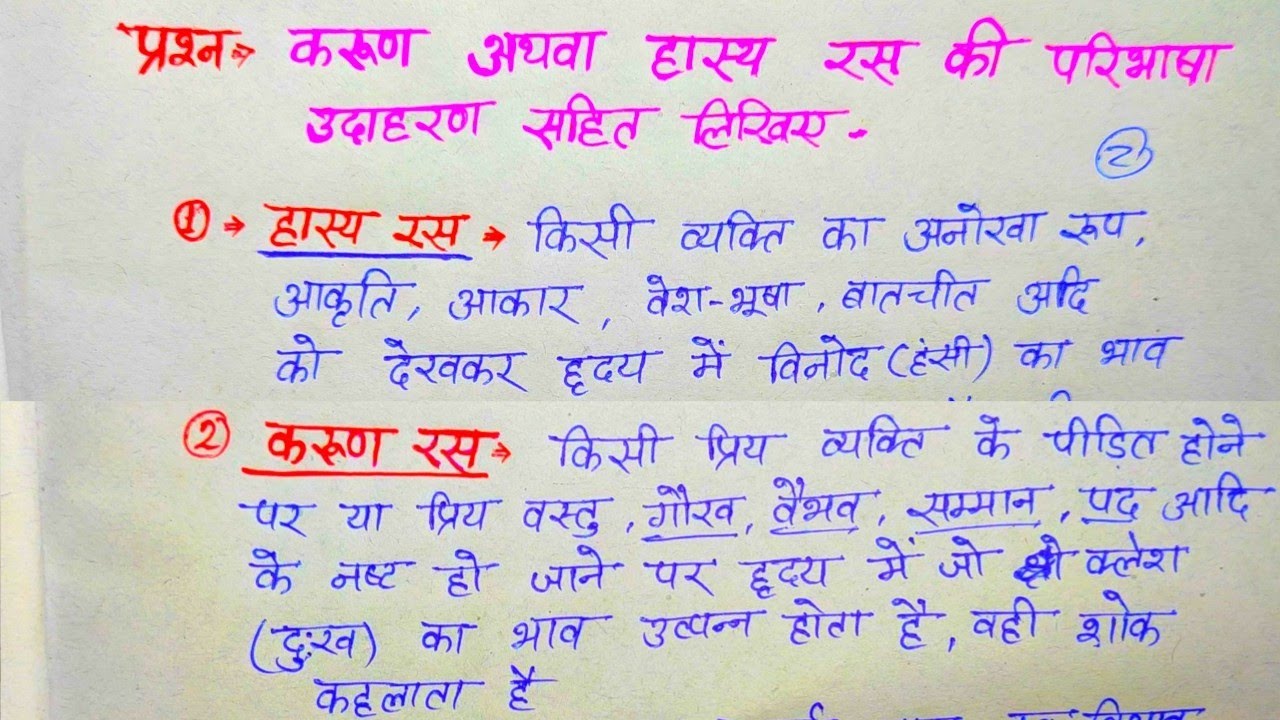 प्रश्न→ करूण अथवा हास्य रस की परिभाषा
उदाहरण सहित लिखिए -
2
① → हास्य रस → किसी व्यक्ति का अनोखा रूप,
आकृति, आकार, वेश-भूषा, बातचीत आदि
को देखकर हृदय में विनोद (हंसी) का भाव
② करूण रस→ किसी प्रिय व्यक्ति के पीड़ित होने
पर या प्रिय वस्तु, गौरव, वैभव, सम्मान, पद आदि
के नष्ट हो जाने पर हृदय में जो क्लेश
(दुःख) का भाव उत्पन्न होता है, वही शोक
कहलाता है